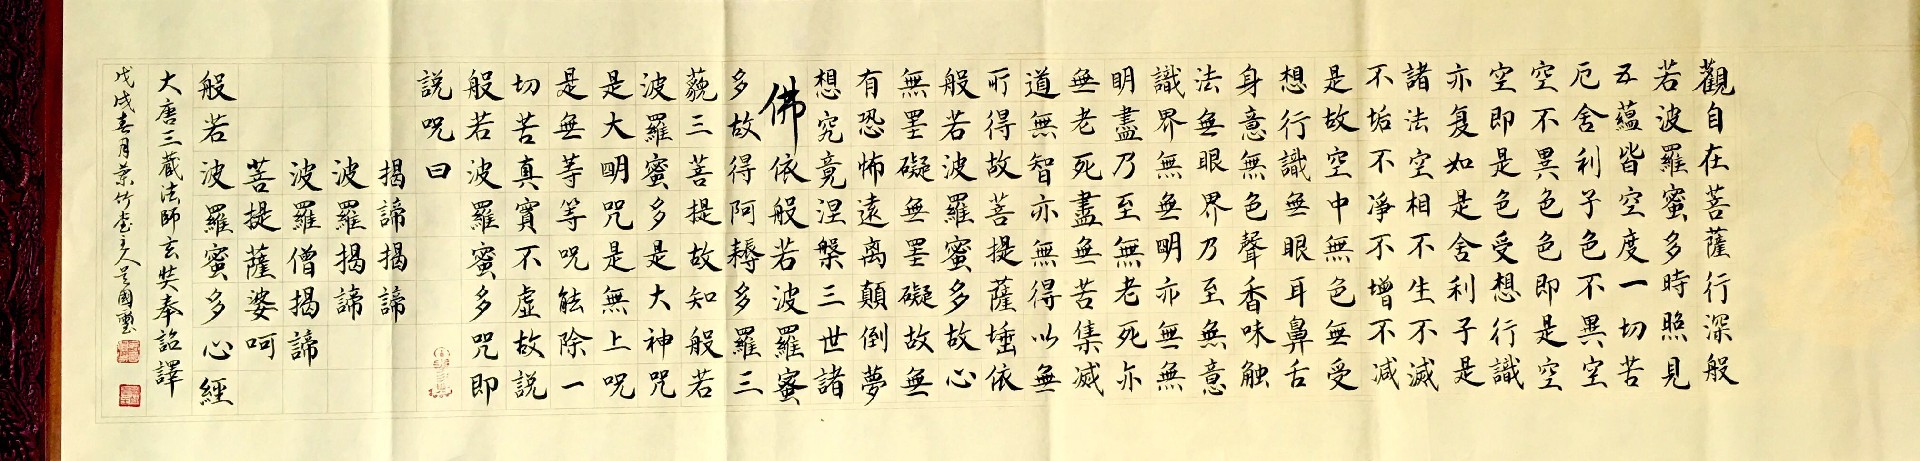 觀自在菩薩行深般
若波羅蜜多時照見
五蘊皆空度一切苦
厄舍利子色不異空
空不異色色即是空
空即是色受想行識
亦复如是舍利子是
諸法空相不生不滅
不垢不淨不增不減
是故空中無色無受
想行識無眼耳鼻舌
身意無色聲香味触
法無眼界乃至無意
識界無無明亦無無
明盡乃至無老死亦
無老死盡無苦集滅
道無智亦無得以無
所得故菩提薩埵依
般若波羅蜜多故心
無罣礙無罣礙故無
有恐怖遠离顛倒夢
想究竟涅槃三世諸
佛依般若波羅蜜
多故得阿耨多羅三
藐三菩提故知般若
波羅蜜多是大神咒
是大明咒是無上咒
是無等等咒能除一
切苦真實不虛故説
般若波羅蜜多咒即
説咒曰
揭諦揭諦
波羅揭諦
波羅僧揭諦
菩提薩婆呵
般若波羅蜜多心經
大唐三藏法師玄奘奉詔譯
戊戌春月竹堂主人國